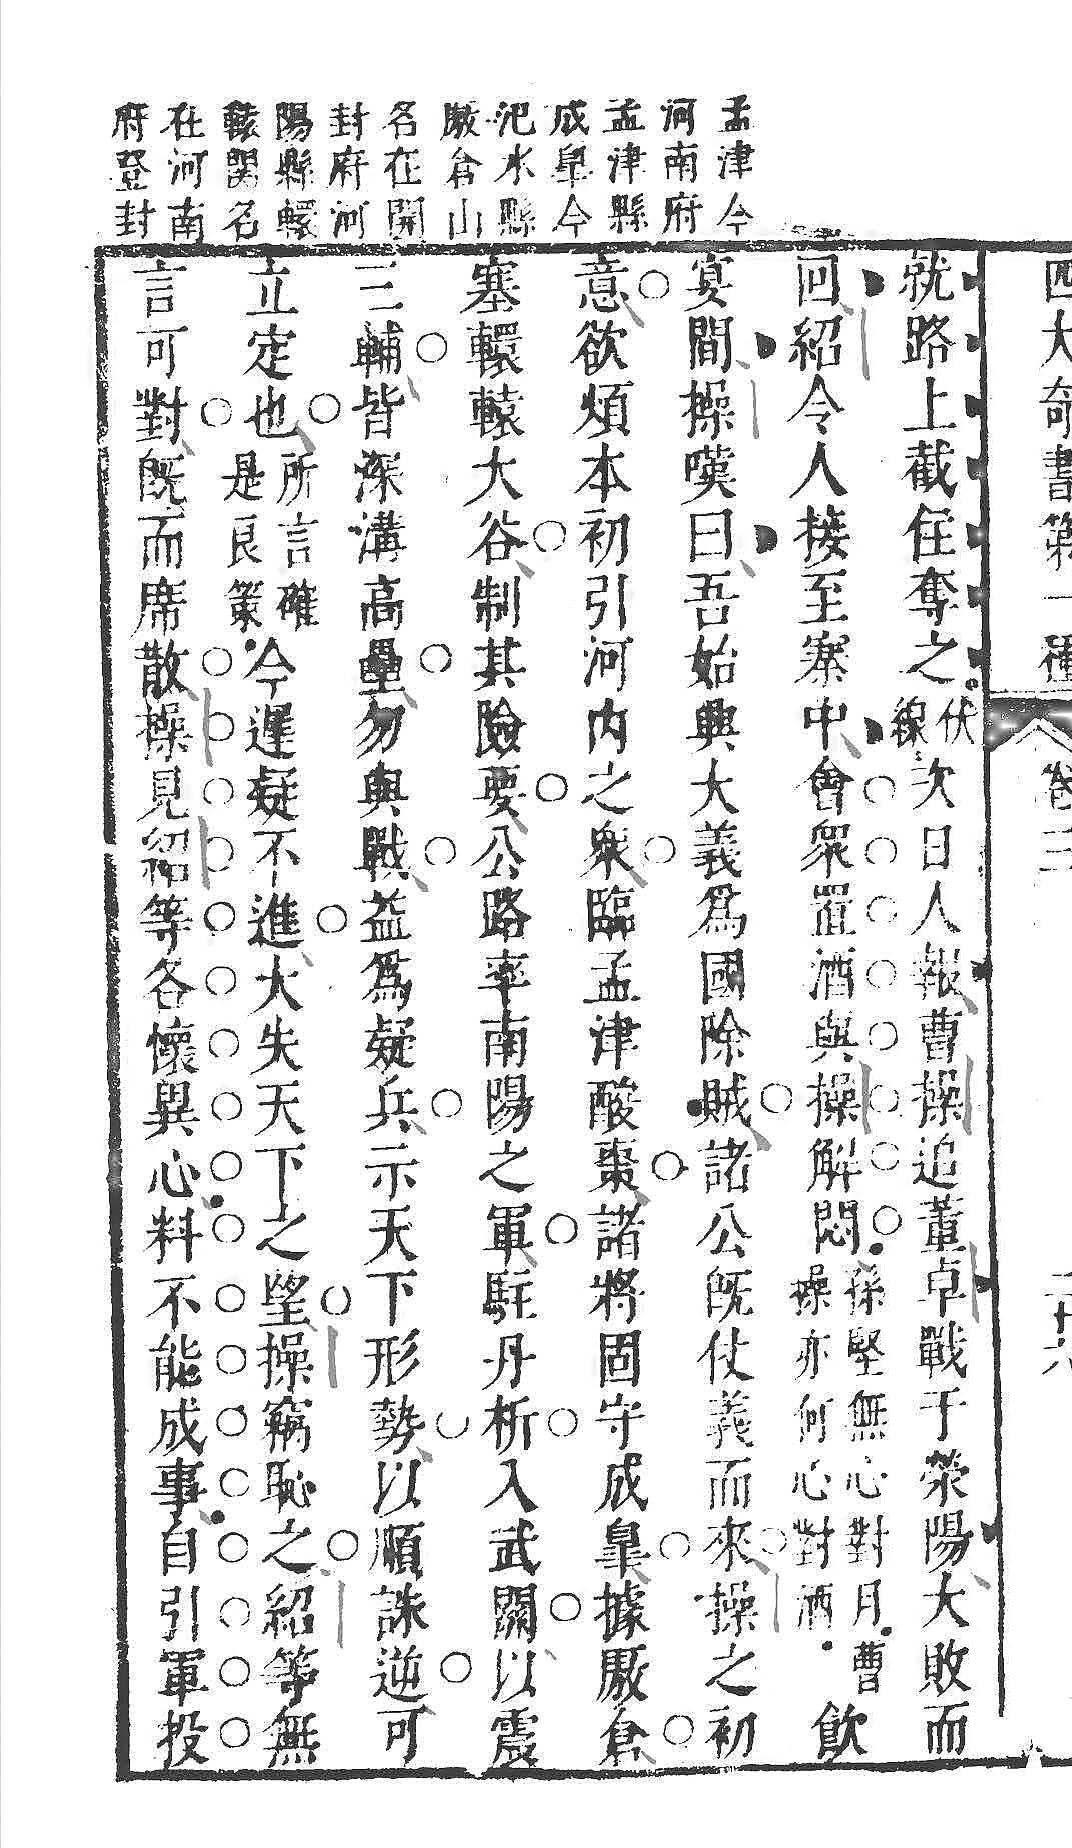 孟津今
河南府
孟津縣
成皐今
汜水縣
厫倉山
名在開
封府河
陽縣轘
轅関名
在河南
府登封
四大奇書第一種
卷二
就路上截住奪之伏線次日人報曹操追董卓戰于滎陽大敗而
回紹令人接至寨中會衆置酒與操解悶孫堅無心對月曹操亦何心對酒飲
宴間操嘆曰吾始興大義爲國除賊諸公既仗義而來操之初
意欲煩本初引河内之衆臨孟津酸棗諸將固守成皐據厫倉
塞轘轅大谷制其險要公路率南陽之軍駐丹析入武關以震
三輔皆深溝高壘勿與戰益爲疑兵示天下形勢以順誅逆可
立定也所言確是良策今遲疑不進大失天下之望操竊恥之紹等無
言可對既而席散操見紹等各懷異心料不能成事自引軍投